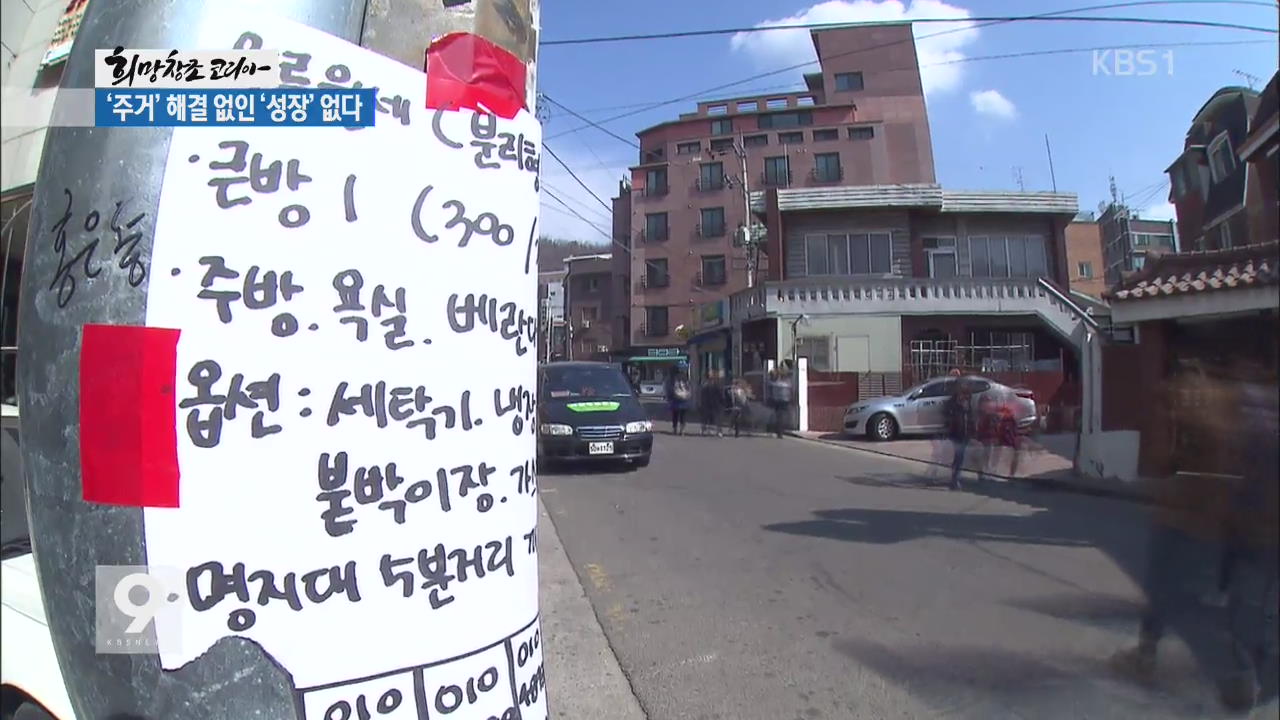 희망창조 코리아
'주거' 해결 없인 '성장' 없다
KBS1
홍은동
(분리형
· 큰방 1 (300/
· 주방. 욕실. 베란다
옵션 : 세탁기. 냉장
붙박이장. 가스
· 명지대 5분거리
010 010 010
9
KBS NEWS